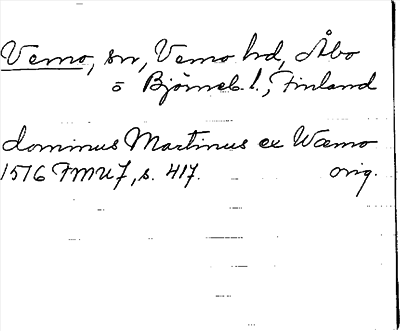 Vemo, sn, Vemo hd, Åbo
o Björneb. l., Finland
dominus Martinus ex Wæmo
1516 FMU 7, s. 417. orig.